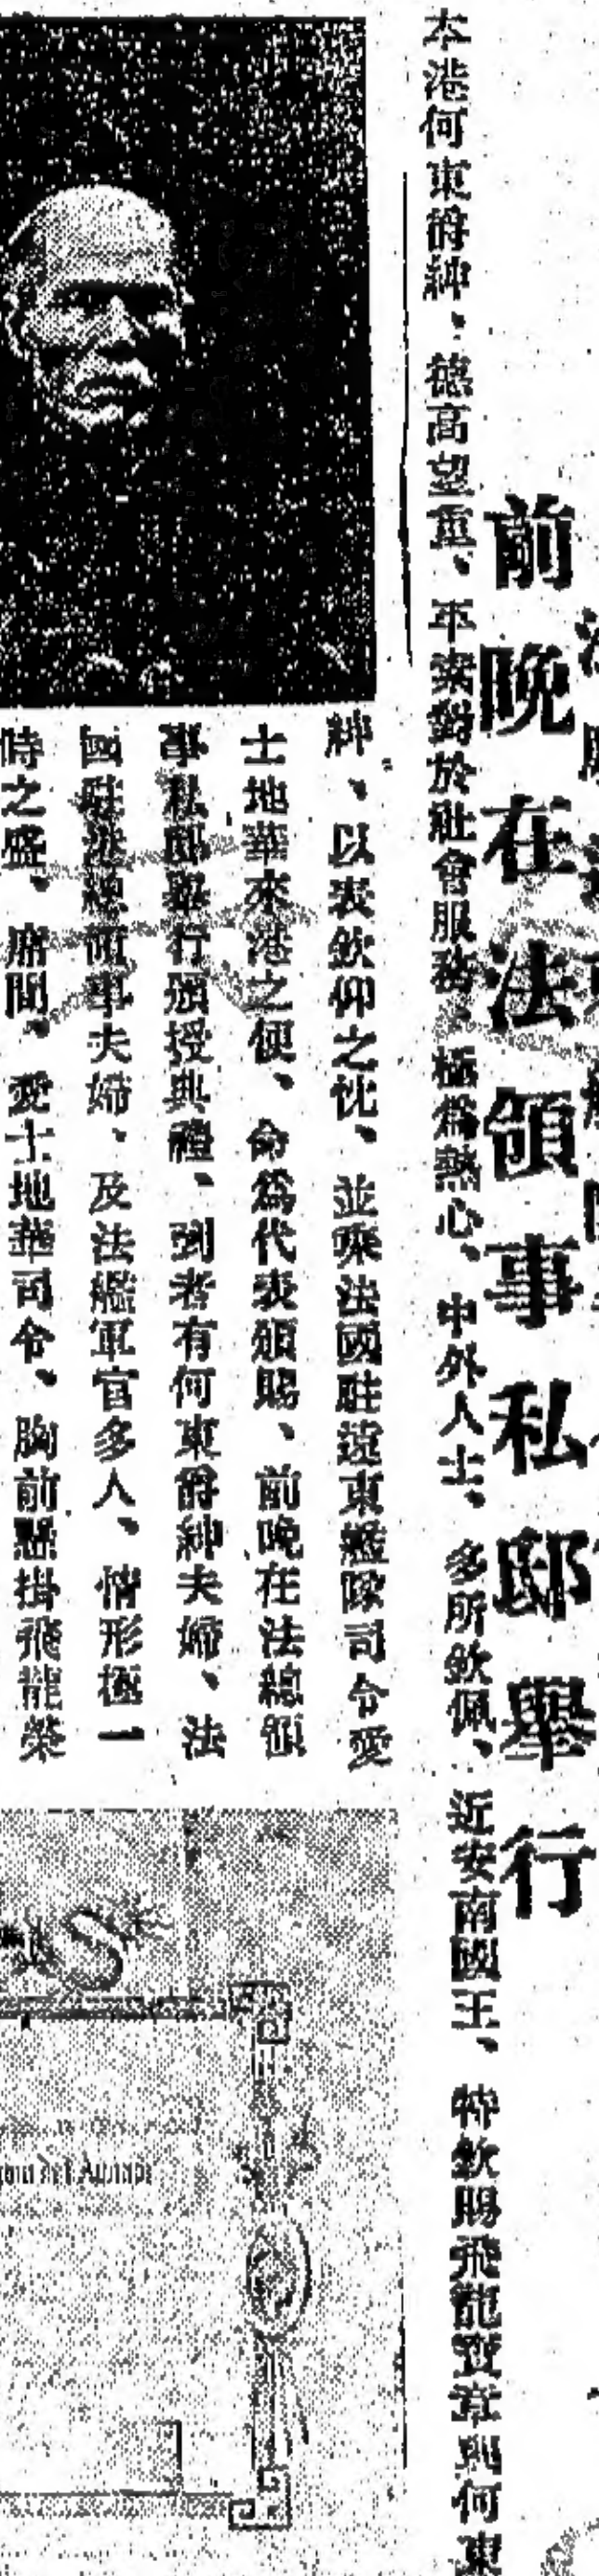 前晚在法領事私邸舉行
本港何東爵紳、德高望重、平素對於社會服務、極爲熱心、中外人士、多所欽佩、近安南國王、特欽賜飛龍寶章與何東
紳、以表欽仰之忱、並乘法國駐遠東艦隊司令愛
士地華來港之便、命爲代表頒賜、前晚在法總領
事私邸舉行頒授典禮、到者有何東爵紳夫婦、法
國駐港總領事夫婦、及法艦軍官多人、情形極一
時之盛、席間、愛士地華司令、胸前懸掛飛龍榮